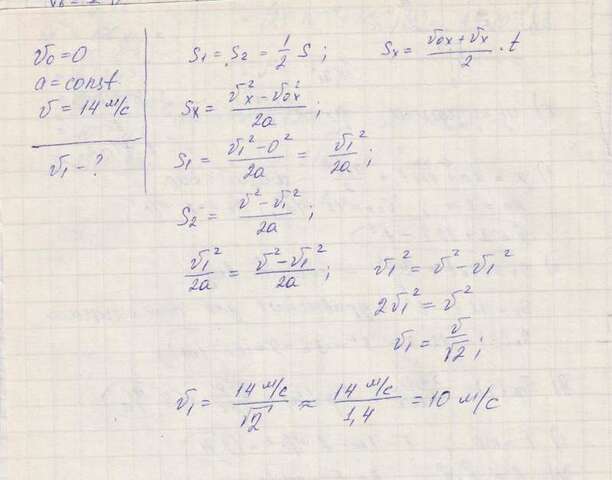 υ₀ = 0
a = const
υ = 14 м/с
υ₁ - ?
S₁ = S₂ = 1/2 S ; Sₓ = (υ₀ₓ + υₓ)/2 · t
Sₓ = (υₓ² - υ₀ₓ²)/2a ;
S₁ = (υ₁² - 0²)/2a = υ₁²/2a ;
S₂ = (υ² - υ₁²)/2a ;
υ₁²/2a = (υ² - υ₁²)/2a ; υ₁² = υ² - υ₁²
2υ₁² = υ²
υ₁ = υ/√2 ;
υ₁ = 14 м/с / √2 ≈ 14 м/с / 1,4 = 10 м/с